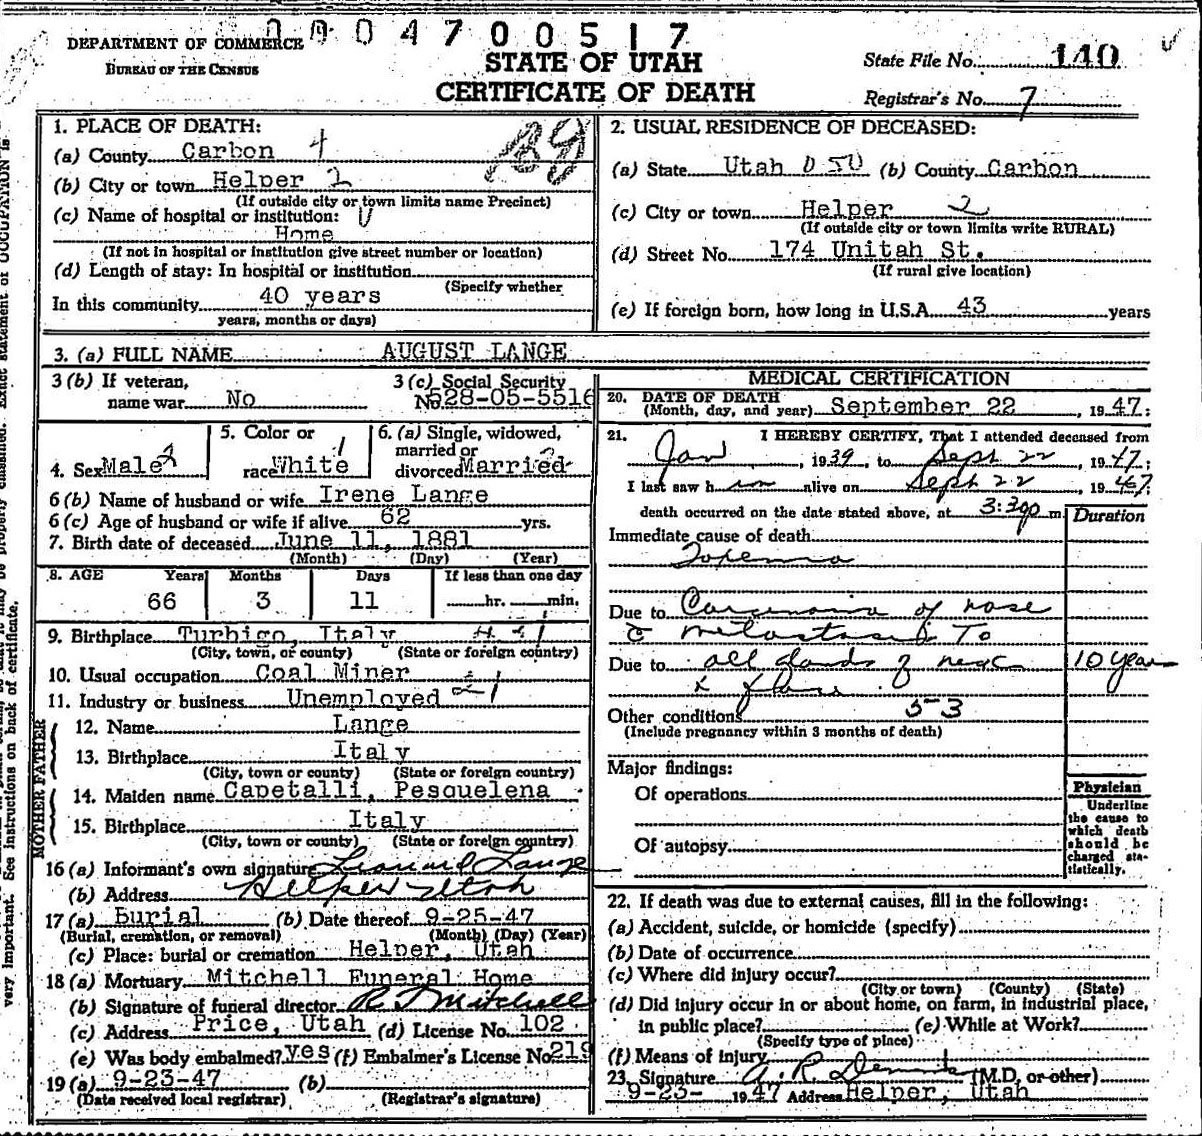 0004700517
DEPARTMENT OF COMMERCE
BUREAU OF THE CENSUS
STATE OF UTAH
CERTIFICATE OF DEATH
State File No. 140
Registrar's No. 7
1. PLACE OF DEATH:
(a) County Carbon 4
(b) City or town Helper 2
(If outside city or town limits name Precinct)
(c) Name of hospital or institution:
Home
(If not in hospital or institution give street number or location)
(d) Length of stay: In hospital or institution
(Specify whether
In this community 40 years
years, months or days)
2. USUAL RESIDENCE OF DECEASED:
(a) State Utah (b) County Carbon
(c) City or town Helper 2
(If outside city or town limits write RURAL)
(d) Street No. 174 Unitah St.
(If rural give location)
(e) If foreign born, how long in U.S.A. 43 years
3. (a) FULL NAME AUGUST LANGE
3 (b) If veteran,
name war No
3 (c) Social Security
No. 528-05-5516
4. Sex Male
5. Color or
race White
6. (a) Single, widowed,
married or
divorced Married
6 (b) Name of husband or wife Irene Lange
6 (c) Age of husband or wife if alive 62 yrs.
7. Birth date of deceased June 11, 1881
(Month) (Day) (Year)
8. AGE Years Months Days If less than one day
66 3 11 hr. min.
9. Birthplace Turbigo, Italy
(City, town, or county) (State or foreign country)
10. Usual occupation Coal Miner
11. Industry or business Unemployed
FATHER
12. Name Lange
13. Birthplace Italy
(City, town or county) (State or foreign country)
MOTHER
14. Maiden name Capetalli, Pesquelena
15. Birthplace Italy
(City, town or county) (State or foreign country)
16 (a) Informant's own signature Leonard Lange
(b) Address Helper Utah
17 (a) Burial (b) Date thereof 9-25-47
(Burial, cremation, or removal) (Month) (Day) (Year)
(c) Place: burial or cremation Helper, Utah
18 (a) Mortuary Mitchell Funeral Home
(b) Signature of funeral director R J Mitchell
(c) Address Price, Utah (d) License No. 102
(e) Was body embalmed? yes (f) Embalmer's License No. 219
19 (a) 9-23-47 (b)
(Date received local registrar) (Registrar's signature)
MEDICAL CERTIFICATION
20. DATE OF DEATH
(Month, day, and year) September 22, 1947;
21. I HEREBY CERTIFY, That I attended deceased from
Jan, 1939, to Sept 22, 1947;
I last saw him alive on Sept 22, 1947;
death occurred on the date stated above, at 3:30p m.
Duration
Immediate cause of death
Toxemia
Due to Carcinoma of nose
c metastasis To
Due to all glands of neck 10 years
& face
Other conditions 53
(Include pregnancy within 3 months of death)
Major findings:
Of operations
Of autopsy
Physician
Underline
the cause to
which death
should be
charged sta-
tistically.
22. If death was due to external causes, fill in the following:
(a) Accident, suicide, or homicide (specify)
(b) Date of occurrence
(c) Where did injury occur?
(City or town) (County) (State)
(d) Did injury occur in or about home, on farm, in industrial place,
in public place? (e) While at Work?
(Specify type of place)
(f) Means of injury
23. Signature A. R. Demman (M.D. or other)
9-23- 1947 Address Helper, Utah
very important. See instructions on back of certificate.
may be properly classified. Exact statement of OCCUPATION is